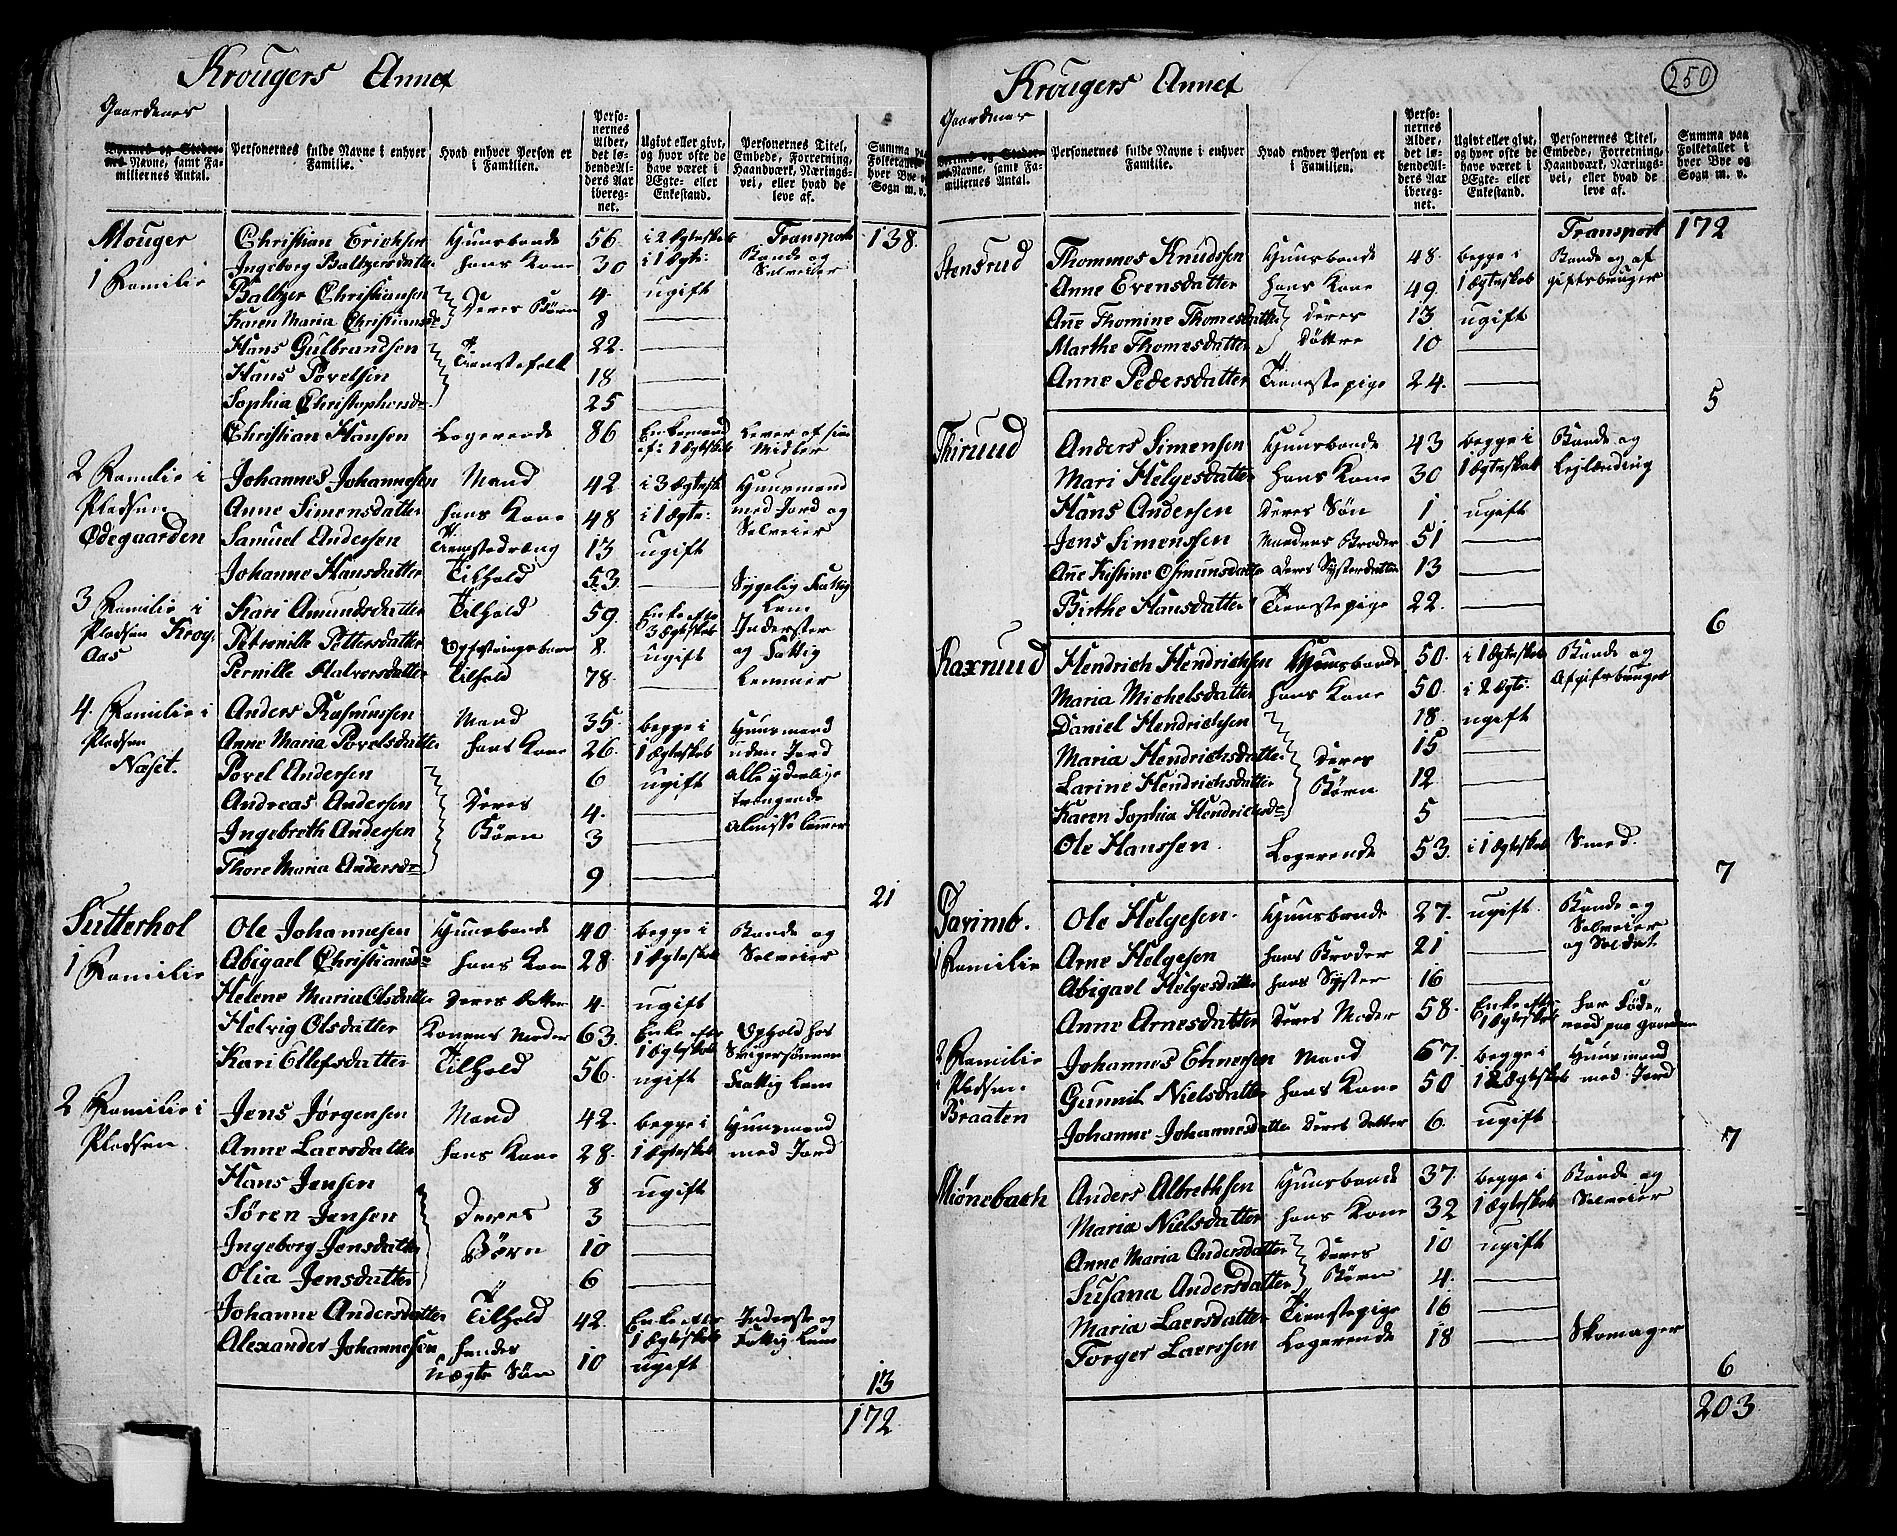 Krougers Annex
Gaardenes
Byernes og Stedernes Navne, samt Familiernes Antal.
Personernes fulde Navne i enhver Familie.
Hvad enhver Person er i Familien.
Personernes Alder, det løbende Alders Aar iberegnet.
Ugivt eller givt, og hvor ofte de have været i Ægte- eller Enkestand.
Personernes Titel, Embede, Forretning, Haandværk, Næringsvei, eller hvad de leve af.
Summa paa Folketallet i hver Bye og Sogn m. v.
Transport 138.
Mouger Christian Erichsen Huusbonde 56. i 2 Ægteskab Bonde og Selveier
1 Familie Ingeborg Baltzersdatter hans Kone 30 i 1 Ægte:
Baltzer Christiansen Deres Børn 4. ugift
Karen Maria Christiansdr 8 —
Hans Gulbrandsen Tienestefolk 22. —
Hans Povelsen 18 —
Sophia Christophersdr 25 —
Christian Hansen Logerende 86 Enkemand af 1 Ægteskab Lever af sine Midler
2 Familie i Pladsen Ødegaarden Johannes Johannesen Mand 42 i 3 Ægtesk. Huusmand med Jord og Selveier
Anne Simensdatter hans Kone 48 i 1 Ægte:
Samuel Andersen Tienestedræng 13 ugift
Johanne Hansdatter Tilhold 53. — Sygelig Fattig Lem
3 Familie i Pladsen Krog Aas Kari Amundsdatter Tilhold 59. Enke efter 3 Ægteskab Inderster og Fattig Lemmer
Petronille Pettersdatter Opfostringsbarn 8. ugift
Pernille Halvorsdatter Tilhold 78. —
4. Familie i Pladsen Næset. Anders Rasmussen Mand 35. begge i 1 Ægteskab Huusmand uden Jord
Anne Maria Povelsdatter hans Kone 26.
Povel Andersen Deres Børn 6 ugift Alle yderlige trængende Almisse Lemmer
Andreas Andersen 4. —
Ingebreth Andersen 3 —
Thore Maria Andersd 9 —
21
Sutterhol Ole Johannesen Huusbonde 40. begge i 1 Ægteskab Bonde og Selveier
1 Familie Abigael Christiansd hans Kone 28
Helene Maria Olsdatter Deres Datter 4. ugift
Helvig Olsdatter Konens Moder 63. Enke efter 1 Ægteskab Ophold hos Svigersønnen
Kari Ellefsdatter Tilhold 56. ugift Fattig Lem
2 Familie i Pladsen Jens Jørgensen Mand 42. begge i 1 Ægteskab Huusmand med Jord
Anne Laersdatter hans Kone 28.
Hans Jensen Deres Børn 8 ugift
Søren Jensen 3 —
Ingeborg Jensdatter 10 —
Olia Jensdatter 6 —
Johanne Andersdatter Tilhold 42. Enke efter 1 Ægteskab Inderste og Fattig Lem
Alexander Johannesen hendes Uægte Søn 10 ugift
13
172
250
Krougers Annex
Gaardenes
Byernes og Stedernes Navne, samt Familiernes Antal.
Personernes fulde Navne i enhver Familie.
Hvad enhver Person er i Familien.
Personernes Alder, det løbende Alders Aar iberegnet.
Ugivt eller givt, og hvor ofte de have været i Ægte- eller Enkestand.
Personernes Titel, Embede, Forretning, Haandværk, Næringsvei, eller hvad de leve af.
Summa paa Folketallet i hver Bye og Sogn m. v.
Transport 172
Stensrud Thommes Knudssen Huusbonde 48. begge i 1 Ægteskab Bonde og afgiftsbruuger
Anne Evensdatter hans Kone 49
Anne Thomine Thomesdatter deres Døttre 13 ugift
Marthe Thomesdatter 10 —
Anne Pedersdatter Tienestepige 24. —
5
Thiruud Anders Simensen Huusbonde 43 begge i 1 Ægteskab Bonde og Lejlænding
Mari Helgesdatter hans Kone 30
Hans Andersen Deres Søn 1 ugift
Jens Simenssen Mandens Broder 51 —
Anne Kistine Osmunsdatter Deres Systerdatter 13 —
Birthe Hansdatter Tienestepige 22. —
6
Kaxruud Hendrich Hendrichsen Huusbonde 50. i 1 Ægteskab Bonde og Afgiftsbruuger
Maria Michelsdatter hans Kone 50. i 2 Ægte:
Daniel Hendrichsen Deres Børn 18. ugift
Maria Hendrichsdatter 15 —
Larine Hendrichsdatter 12 —
Karen Sophia Hendrichsd 5 —
Ole Hanssen. Logerende 53. i 1 Ægteskab Smed.
7
Garimb. Ole Helgesen. Huusbonde 27. ugift Bonde og Selveier og Soldat
1 Familie Arne Helgesen hans Broder 21 —
Abigael Helgesdatter hans Syster 16 —
Anne Arnesdatter Deres Moder 58. Enke efter 1 Ægteskab har Føderaad paa Gaarden
2 Familie Pladsen Braaten Johannes Ehnersen Mand 67. begge i 1 Ægteskab Huusmand med Jord
Gunnil Nielsdatter hans Kone 50
Johanne Johannesdatter deres Datter 6. ugift
7
Miønebach Anders Albrethsen Huusbonde 37. begge i 1 Ægteskab Bonde og Selveier
Maria Nielsdatter hans Kone 32
Anne Maria Andersdatter Deres Børn 10 ugift
Susana Andersdatter 4. —
Maria Laersdatter Tienestepige 16 —
Torger Laerssen Logerende 18 — Skomager
6
203